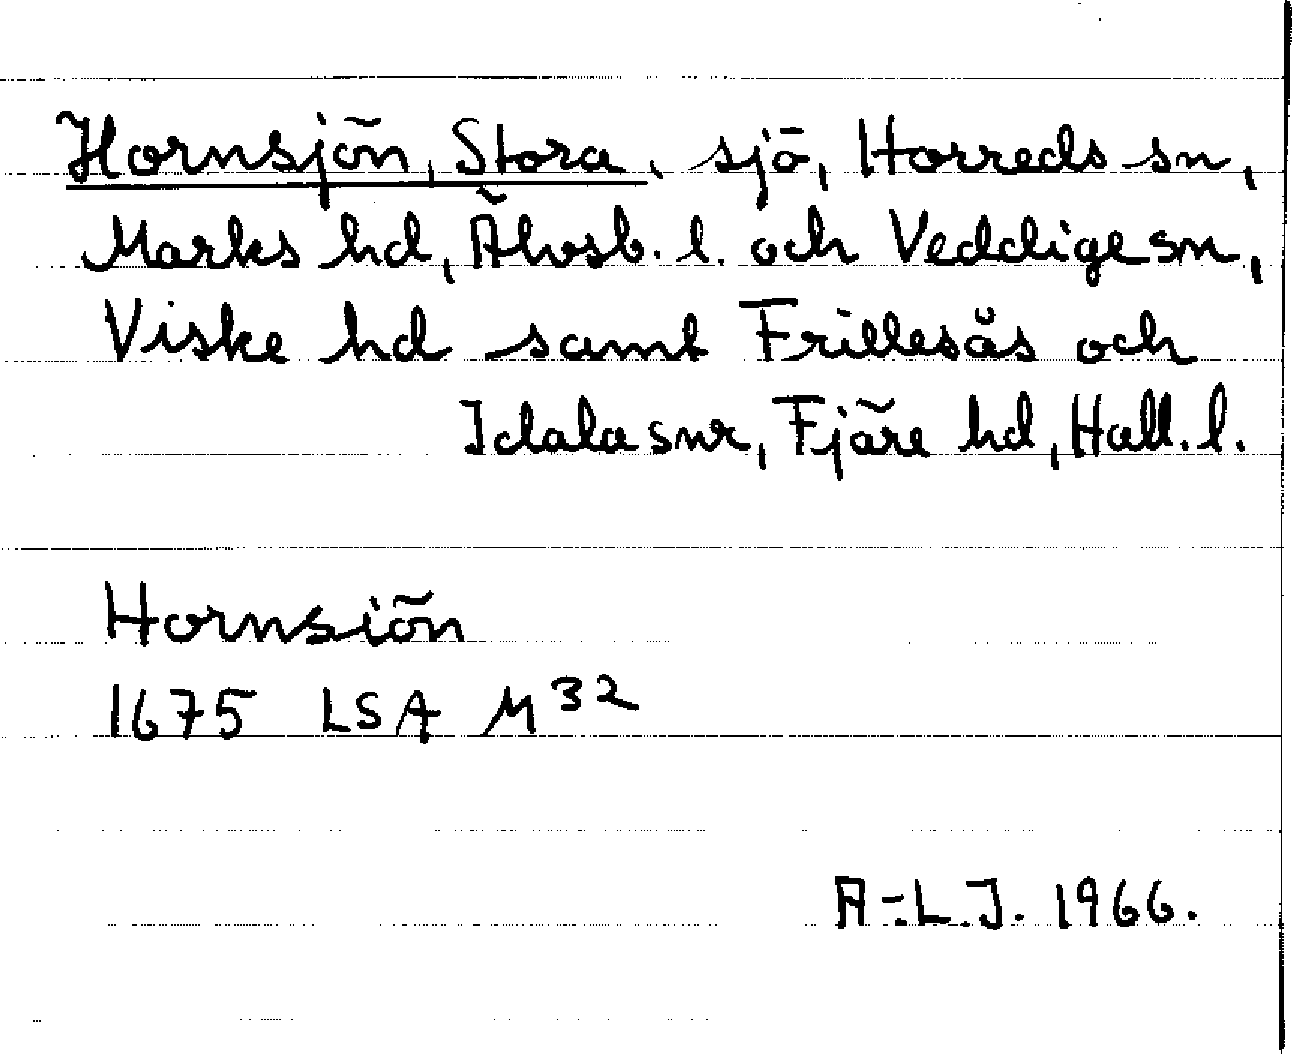 Hornsjön, Stora, sjö, Horreds sn,
Marks hd, Älvsb. l. och Veddige sn,
Viske hd samt Frillesås och
Idala snr, Fjäre hd, Hall. l.
Hornsiön
1675 LSA M32
A-L.J. 1966.